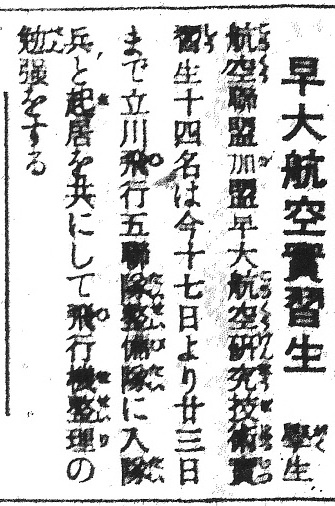 早大航空實習生　學生
航空聯盟加盟早大航空研究技術實
習生十四名は今十七日より廿三日
まで立川飛行五聯隊整備隊に入隊
兵と起居を共にして飛行機整理の
勉强をする